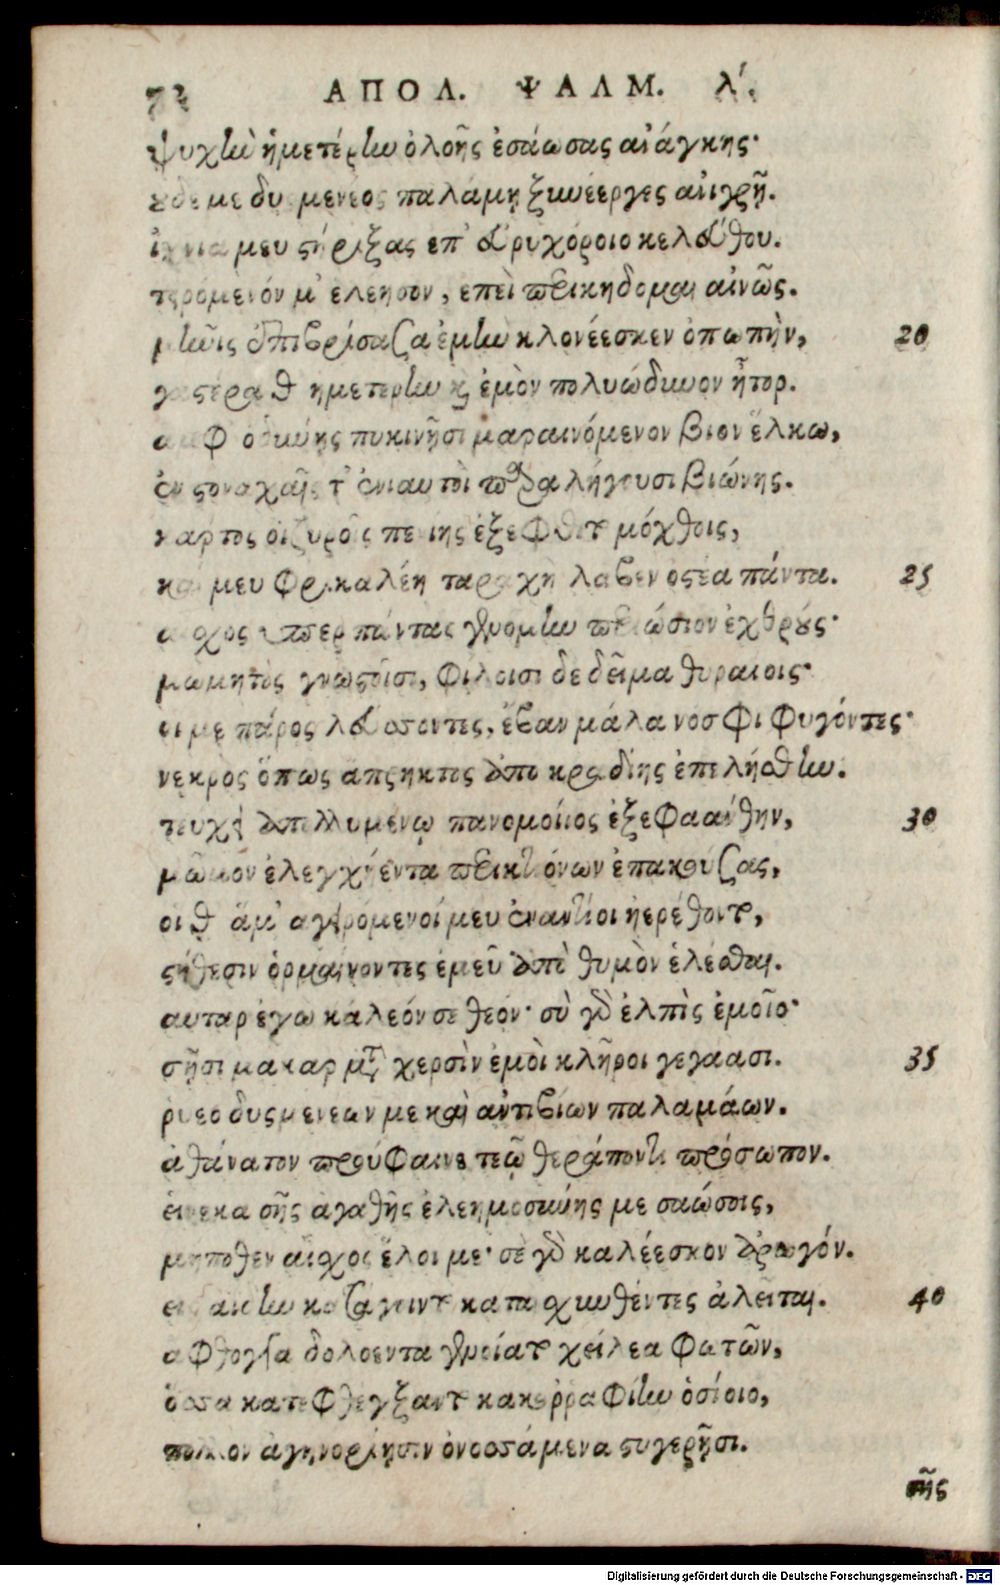 72 ΑΠΟΛ. ΨΑΛΜ. λ´.
ψυχὴν ἡμετέρην ὀλοῆς ἐσάωσας ἀνάγκης·
οὐδέ με δυσμενέος παλάμῃ ξυνέεργες ἀνιγρῇ.
ἴχνια μευ στήριξας ἐπ' εὐρυχόροιο κελεύθου.
τειρόμενόν μ' ἐλέησον, ἐπεὶ περικήδομαι αἰνῶς.
μῆνις ἐπιβρίσασα ἐμὴν κλονέεσκεν ὀπωπὴν, 20
γαστέρα θ' ἡμετέρην καὶ ἐμὸν πολυώδυνον ἦτορ.
ἀμφ' ὀδύνης πυκινῇσι μαραινόμενον βίον ἕλκω,
ἐν στοναχαῖς τ' ἐνιαυτοὶ παραλήγουσι βιώνης.
κάρτος ὀϊζυροῖς πενίης ἐξέφθιτο μόχθοις,
καί μευ φρικαλέη ταραχὴ λάβεν ὀστέα πάντα. 25
αἶσχος ὑπὲρ πάντας γενόμην περιώσιον ἐχθρούς·
μωμητὸς γνωστοῖσι, φίλοισι δὲ δεῖμα θυραίοις·
οἵ με πάρος λεύσσοντες, ἔβαν μάλα νόσφι φυγόντες·
νεκρὸς ὅπως ἄπρηκτος ἀπὸ κραδίης ἐπελήσθην.
τεύχει ἀπολλυμένῳ πανομοίιος ἐξεφαάνθην, 30
μῶμον ἐλεγχήεντα περικτιόνων ἐπακούσας,
οἵ θ' ἅμ' ἀγειρόμενοί μευ ἐναντίοι ἠερέθοντο,
στήθεσιν ὁρμαίνοντες ἐμεῦ ἀπὸ θυμὸν ἑλέσθαι.
αὐτὰρ ἐγὼ κάλεόν σε θεόν· σὺ γὰρ ἐλπὶς ἐμοῖο·
σῇσι μάκαρ μετὰ χερσὶν ἐμοὶ κλῆροι γεγάασι. 35
ῥύεο δυσμενέων με καὶ ἀντιβίων παλαμάων.
ἀθάνατον προύφαινε τεῷ θεράποντι πρόσωπον.
εἵνεκα σῆς ἀγαθῆς ἐλεημοσύνης με σαώσοις,
μήποθεν αἶσχος ἕλοι με· σὲ γὰρ καλέεσκον ἀρωγόν.
κατασχυνθέντες ἀλεῖται. 40
ἄφθογγα δολόεντα γενοίατο χείλεα φωτῶν,
ὅσσα κατεφθέγξαντο κακορραφίην ὁσίοιο,
πολλὸν ἀγηνορίῃσιν ὀνοσσάμενα στυγερῇσι.
τῆς
Digitalisierung gefördert durch die Deutsche Forschungsgemeinschaft - DFG